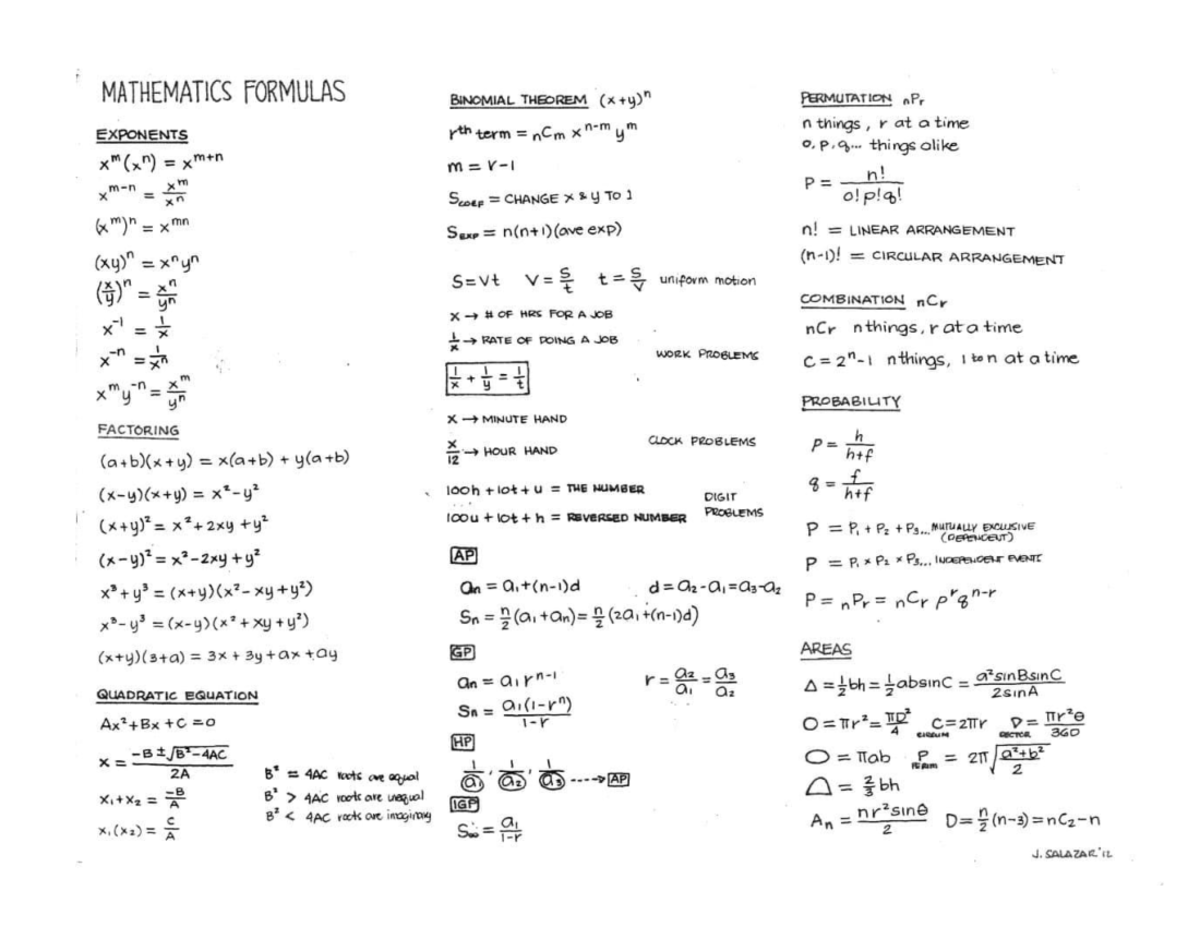 MATHEMATICS FORMULAS
EXPONENTS
x^m(x^n) = x^{m+n}
x^{m-n} = x^m/x^n
(x^m)^n = x^{mn}
(xy)^n = x^n y^n
(x/y)^n = x^n/y^n
x^{-1} = 1/x
x^{-n} = 1/x^n
x^m y^{-n} = x^m/y^n
FACTORING
(a+b)(x+y) = x(a+b) + y(a+b)
(x-y)(x+y) = x²-y²
(x+y)² = x²+2xy+y²
(x-y)² = x²-2xy+y²
x³+y³ = (x+y)(x²-xy+y²)
x³-y³ = (x-y)(x²+xy+y²)
(x+y)(3+a) = 3x+3y+ax+ay
QUADRATIC EQUATION
Ax²+Bx+C=0
x = (-B±√(B²-4AC))/2A
x₁+x₂ = -B/A
x₁(x₂) = C/A
B² = 4AC roots are equal
B² > 4AC roots are unequal
B² < 4AC roots are imaginary
BINOMIAL THEOREM (x+y)^n
rth term = nCm x^{n-m} y^m
m = r-1
S_COEF = CHANGE x & y TO 1
S_EXP = n(n+1)(ave exp)
S=Vt V=S/t t=S/V uniform motion
x → # OF HRS FOR A JOB
1/x → RATE OF DOING A JOB
WORK PROBLEMS
1/x + 1/y = 1/t
x → MINUTE HAND
CLOCK PROBLEMS
x/12 → HOUR HAND
100h+10t+u = THE NUMBER
DIGIT
PROBLEMS
100u+10t+h = REVERSED NUMBER
AP
a_n = a₁+(n-1)d d=a₂-a₁=a₃-a₂
S_n = n/2(a₁+a_n) = n/2(2a₁+(n-1)d)
GP
a_n = a₁r^{n-1} r = a₂/a₁ = a₃/a₂
S_n = a₁(1-r^n)/(1-r)
HP
1/a₁, 1/a₂, 1/a₃ ----> AP
IGP
S_∞ = a₁/(1-r)
PERMUTATION nPr
n things, r at a time
o,p,q... things alike
P = n!/(o!p!q!)
n! = LINEAR ARRANGEMENT
(n-1)! = CIRCULAR ARRANGEMENT
COMBINATION nCr
nCr n things, r at a time
C = 2^n-1 n things, 1 to n at a time
PROBABILITY
P = h/(h+f)
q = f/(h+f)
P = P₁+P₂+P₃... MUTUALLY EXCLUSIVE
(DEPENDENT)
P = P₁×P₂×P₃... INDEPENDENT EVENTS
P = nPr = nCr p^r q^{n-r}
AREAS
△ = 1/2 bh = 1/2 absinC = a²sinBsinC/2sinA
O = πr² = πD²/4 C=2πr CIRCUM D = πr²θ/360 SECTOR
O = πab P PERIM = 2π√((a²+b²)/2)
△ = 2/3 bh
A_n = nr²sinθ/2 D = n/2(n-3) = nC₂-n
J. SALAZAR '12